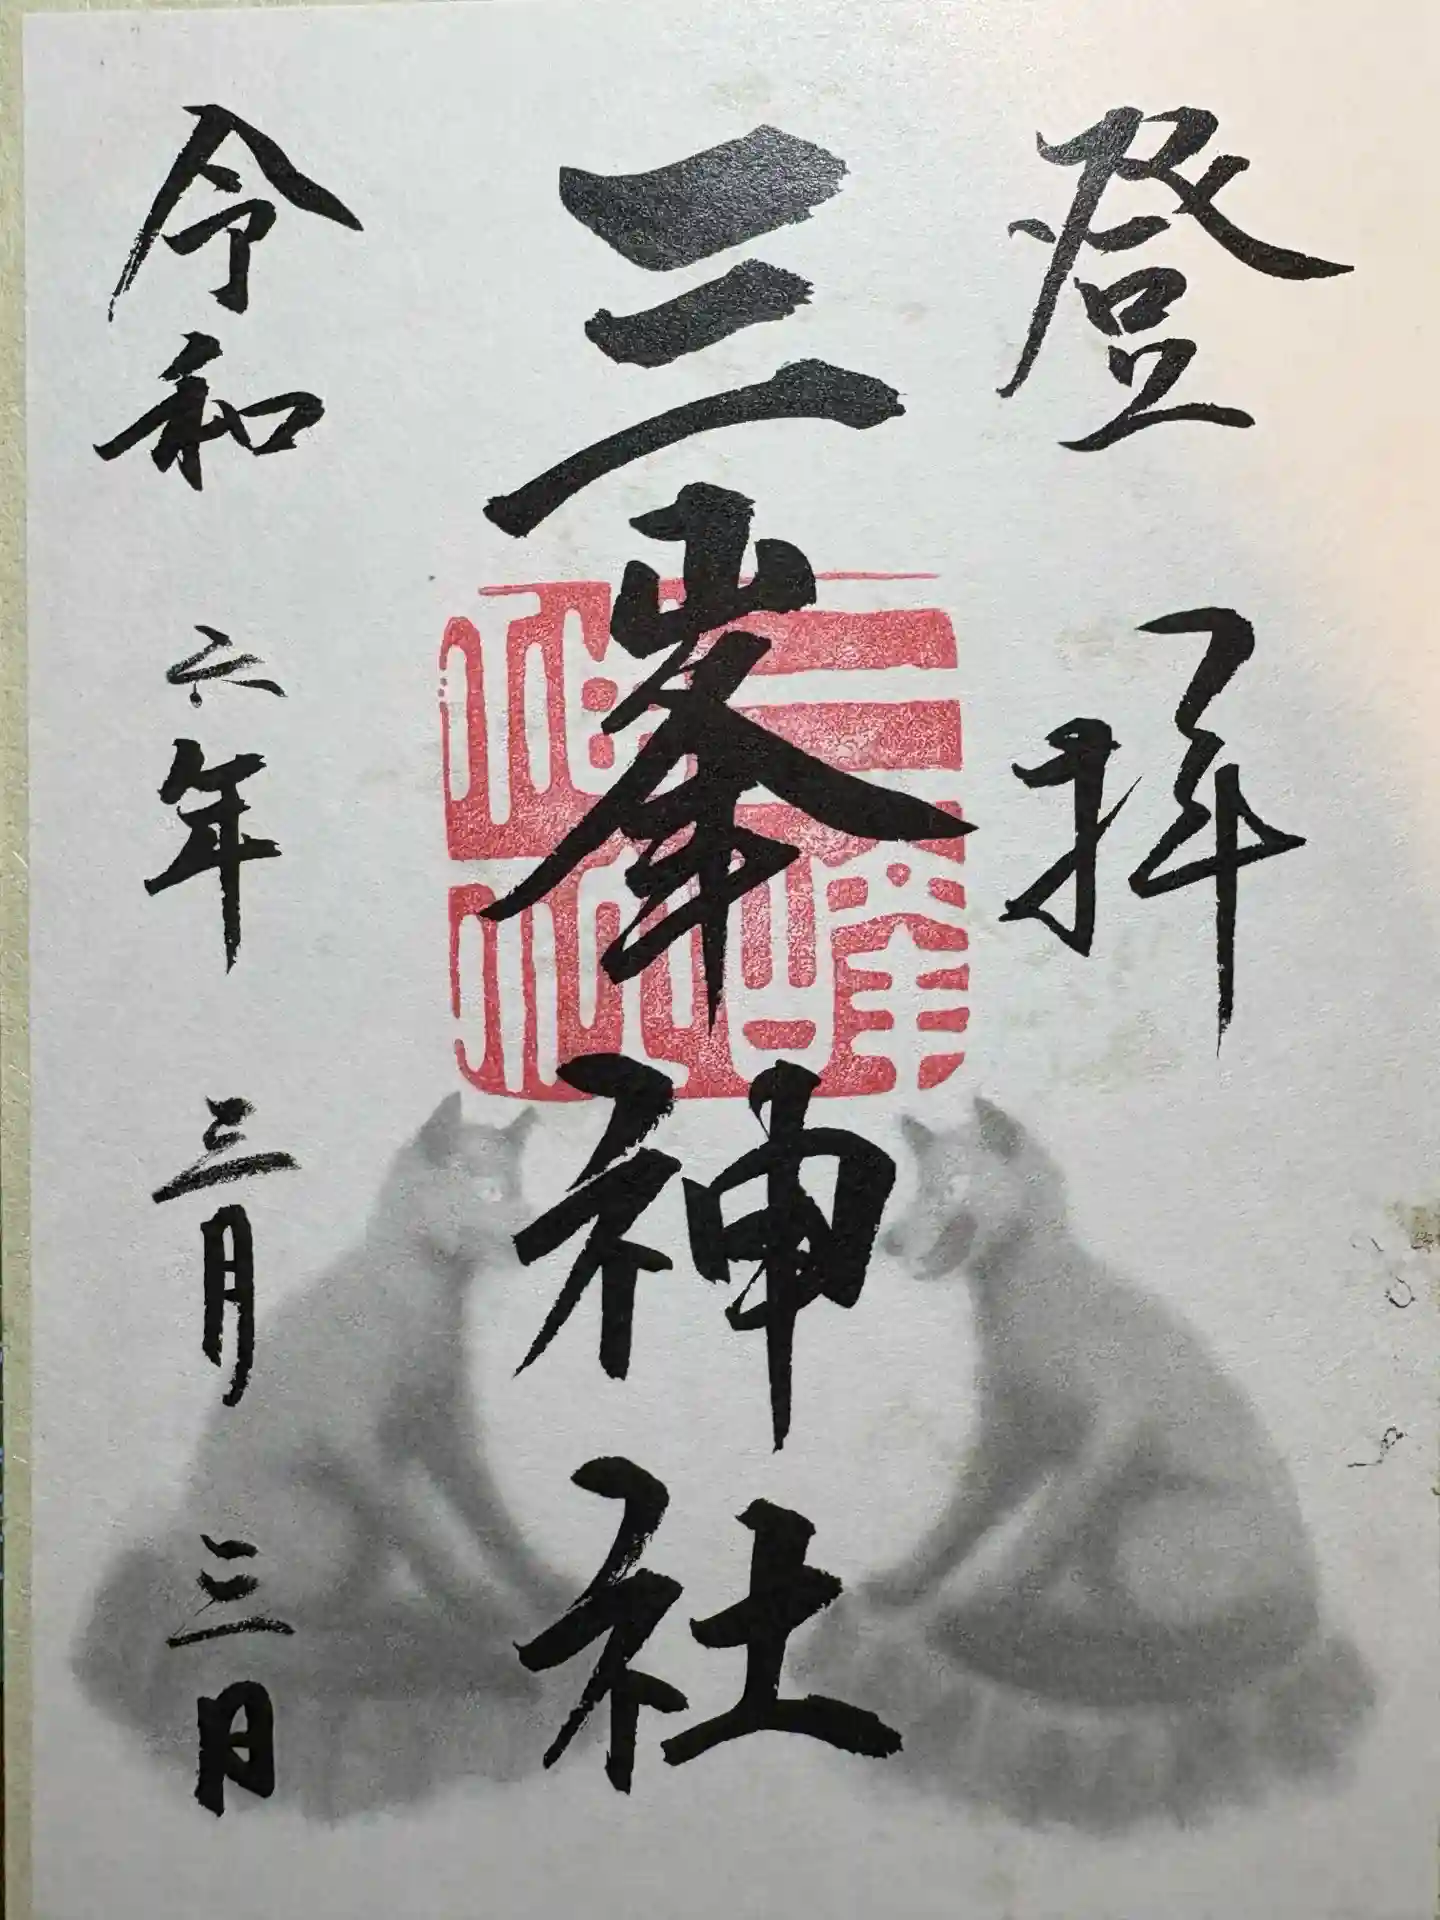 登拝
三峯神社
三峰神社
令和六年三月三日